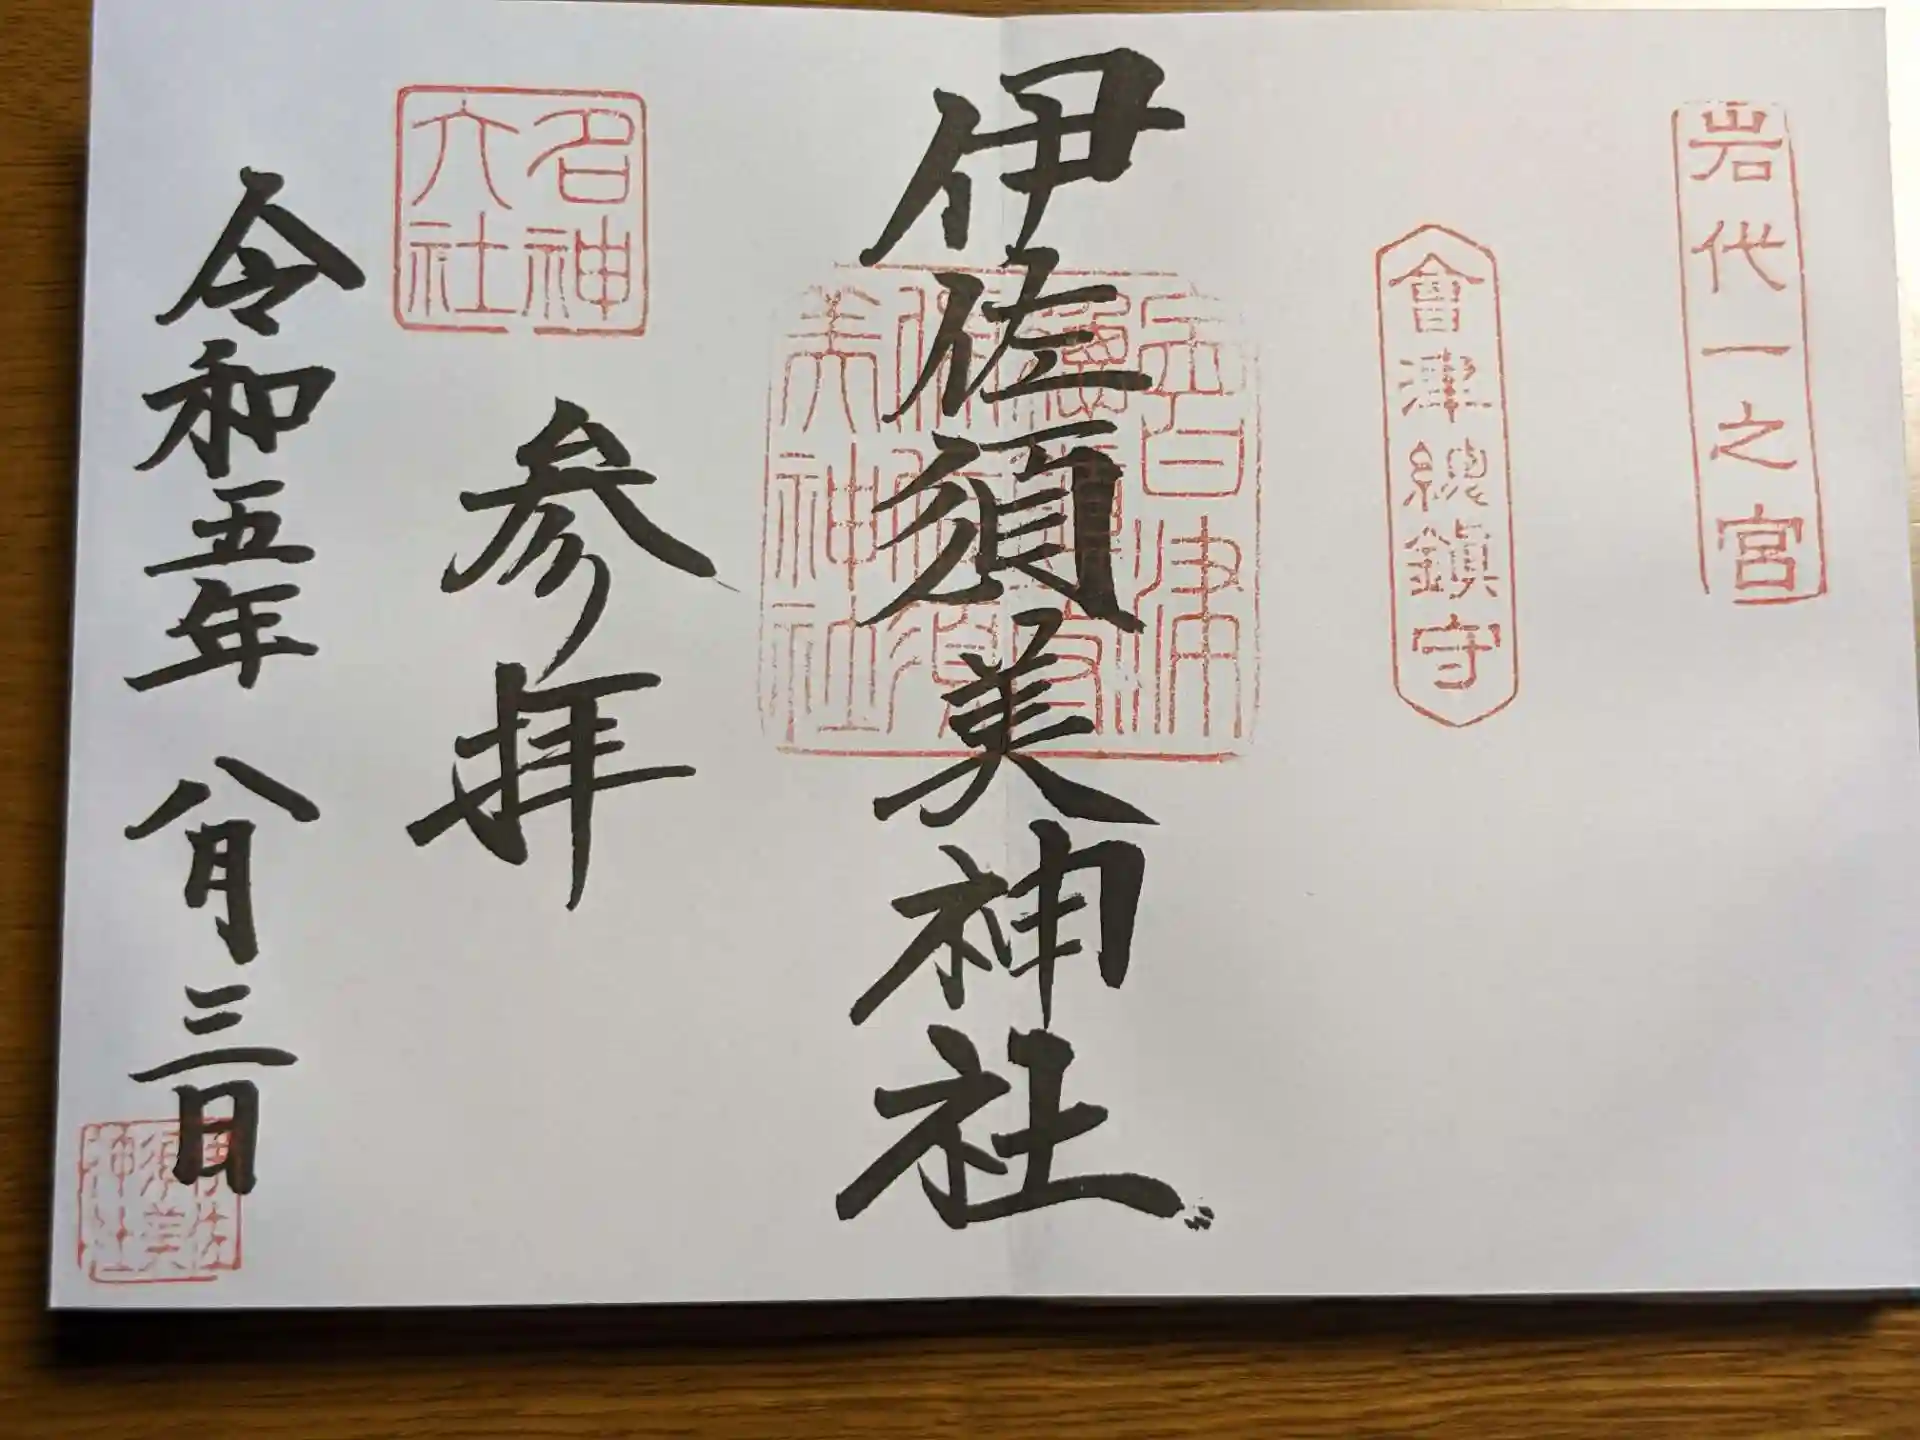 岩代一之宮
會津總鎮守
伊佐須美神社
名神
大社
参拝
令和五年 八月三日
伊佐
須美
神社